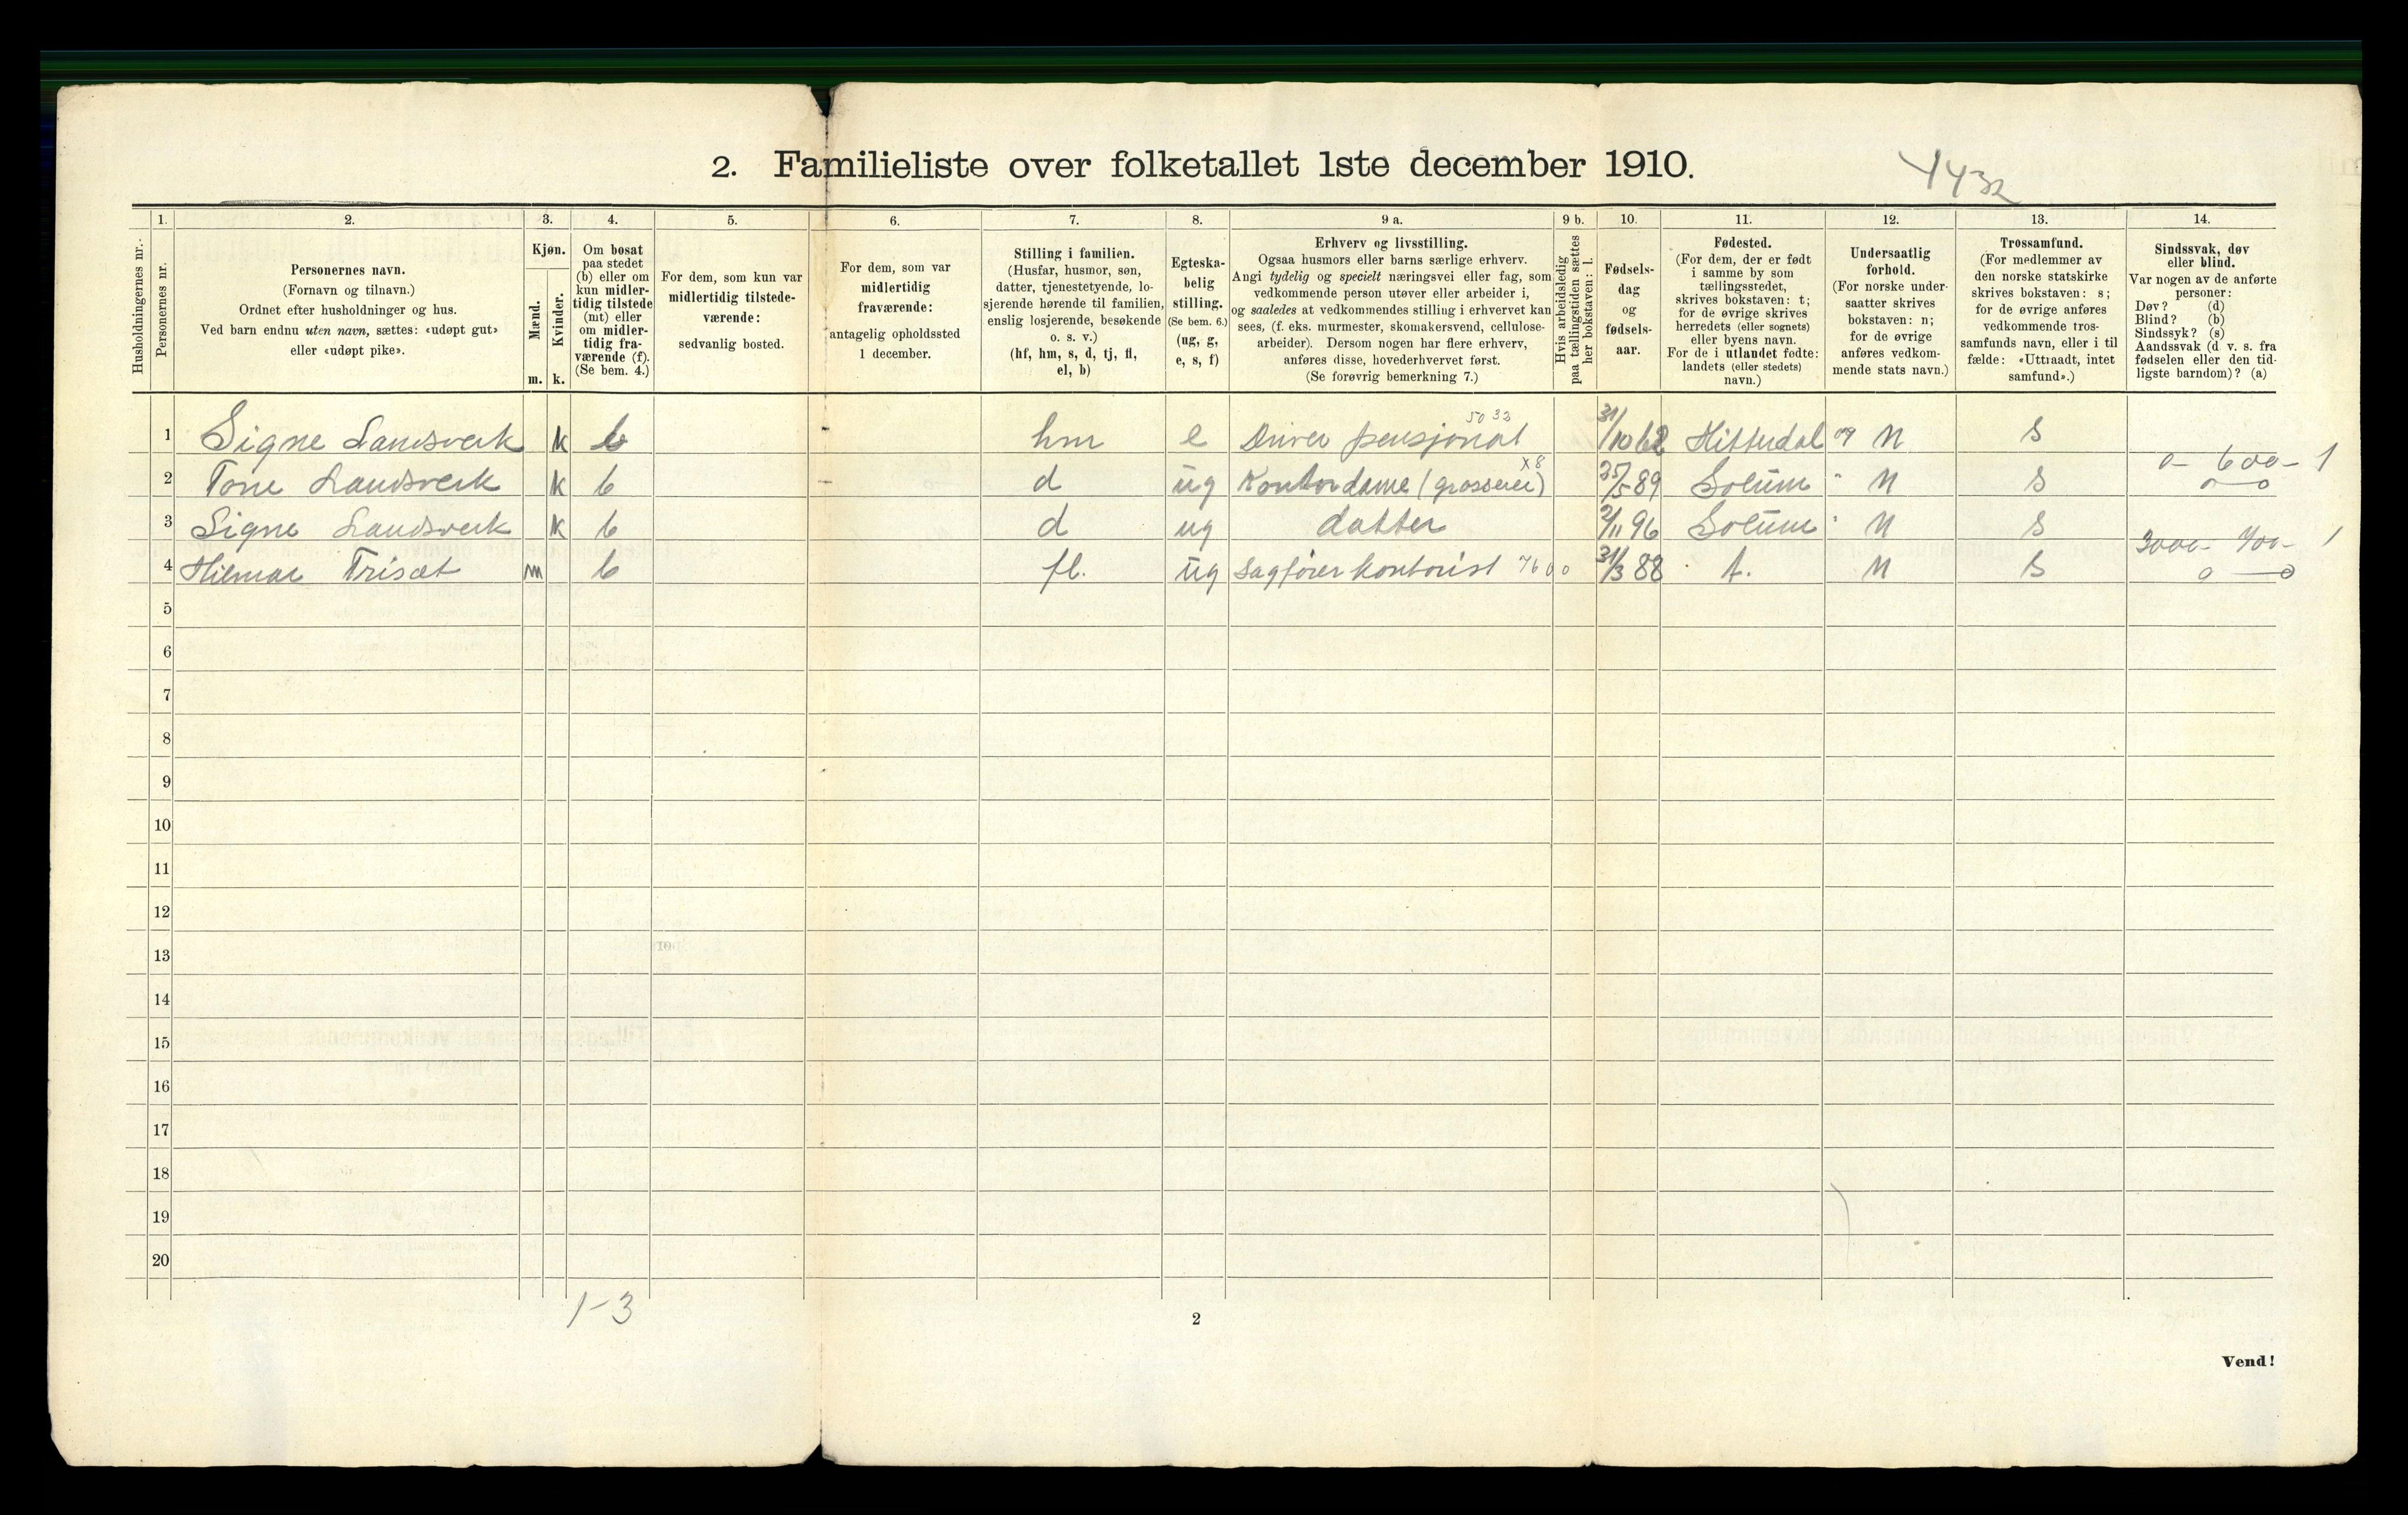 2. Familieliste over folketallet 1ste december 1910.
4432
Husholdningernes nr.
1.
Personernes nr.
2.
Personernes navn.
(Fornavn og tilnavn.)
Ordnet efter husholdninger og hus.
Ved barn endnu uten navn, sættes: «udøpt gut»
eller «udøpt pike».
3.
Kjøn.
Mænd.
m.
Kvinder.
k.
4.
Om bosat
paa stedet
(b) eller om
kun midler-
tidig tilstede
(mt) eller
om midler-
tidig fra-
værende (f).
(Se bem. 4.)
5.
For dem, som kun var
midlertidig tilstede-
værende:
sedvanlig bosted.
6.
For dem, som var
midlertidig
fraværende:
antagelig opholdssted
1 december.
7.
Stilling i familien.
(Husfar, husmor, søn,
datter, tjenestetyende, lo-
sjerende hørende til familien,
enslig losjerende, besøkende
o. s. v.)
(hf, hm, s, d, tj, fl,
el, b)
8.
Egteska-
belig
stilling.
(Se bem. 6.)
(ug, g,
e, s, f)
9 a.
Erhverv og livsstilling.
Ogsaa husmors eller barns særlige erhverv.
Angi tydelig og specielt næringsvei eller fag, som
vedkommende person utøver eller arbeider i,
og saaledes at vedkommendes stilling i erhvervet kan
sees, (f. eks. murmester, skomakersvend, cellulose-
arbeider). Dersom nogen har flere erhverv,
anføres disse, hovederhvervet først.
(Se forøvrig bemerkning 7.)
9 b.
Hvis arbeidsledig
paa tællingstiden sættes
her bokstaven: l.
10.
Fødsels-
dag
og
fødsels-
aar.
11.
Fødested.
(For dem, der er født
i samme by som
tællingsstedet,
skrives bokstaven: t;
for de øvrige skrives
herredets (eller sognets)
eller byens navn.
For de i utlandet fødte:
landets (eller stedets)
navn.)
12.
Undersaatlig
forhold.
(For norske under-
saatter skrives
bokstaven: n;
for de øvrige
anføres vedkom-
mende stats navn.)
13.
Trossamfund.
(For medlemmer av
den norske statskirke
skrives bokstaven: s;
for de øvrige anføres
vedkommende tros-
samfunds navn, eller i til
fælde: «Uttraadt, intet
samfund».)
14.
Sindssvak, døv
eller blind.
Var nogen av de anførte
personer:
Døv? (d)
Blind? (b)
Sindssyk? (s)
Aandssvak (d. v. s. fra
fødselen eller den tid-
ligste barndom)? (a)
1 Signe Landsverk k b hm e Driver pensjonat 5033 31/10 62 Hitterdal 09 N S
0- 600- 1
2 Tone Landsverk k b d ug Kontordame (grosserer) x8 25/5 89 Solum " N S 0—0
3 Signe Landsverk k b d ug datter 2/11 96 Solum " N S
3000- 400- 1
4 Hilmar Trisæt m b fl. ug Sagfører kontorist 7600 31/3 88 t. N S 0—0
5
6
7
8
9
10
11
12
13
14
15
16
17
18
19
20
1-3
2
Vend!